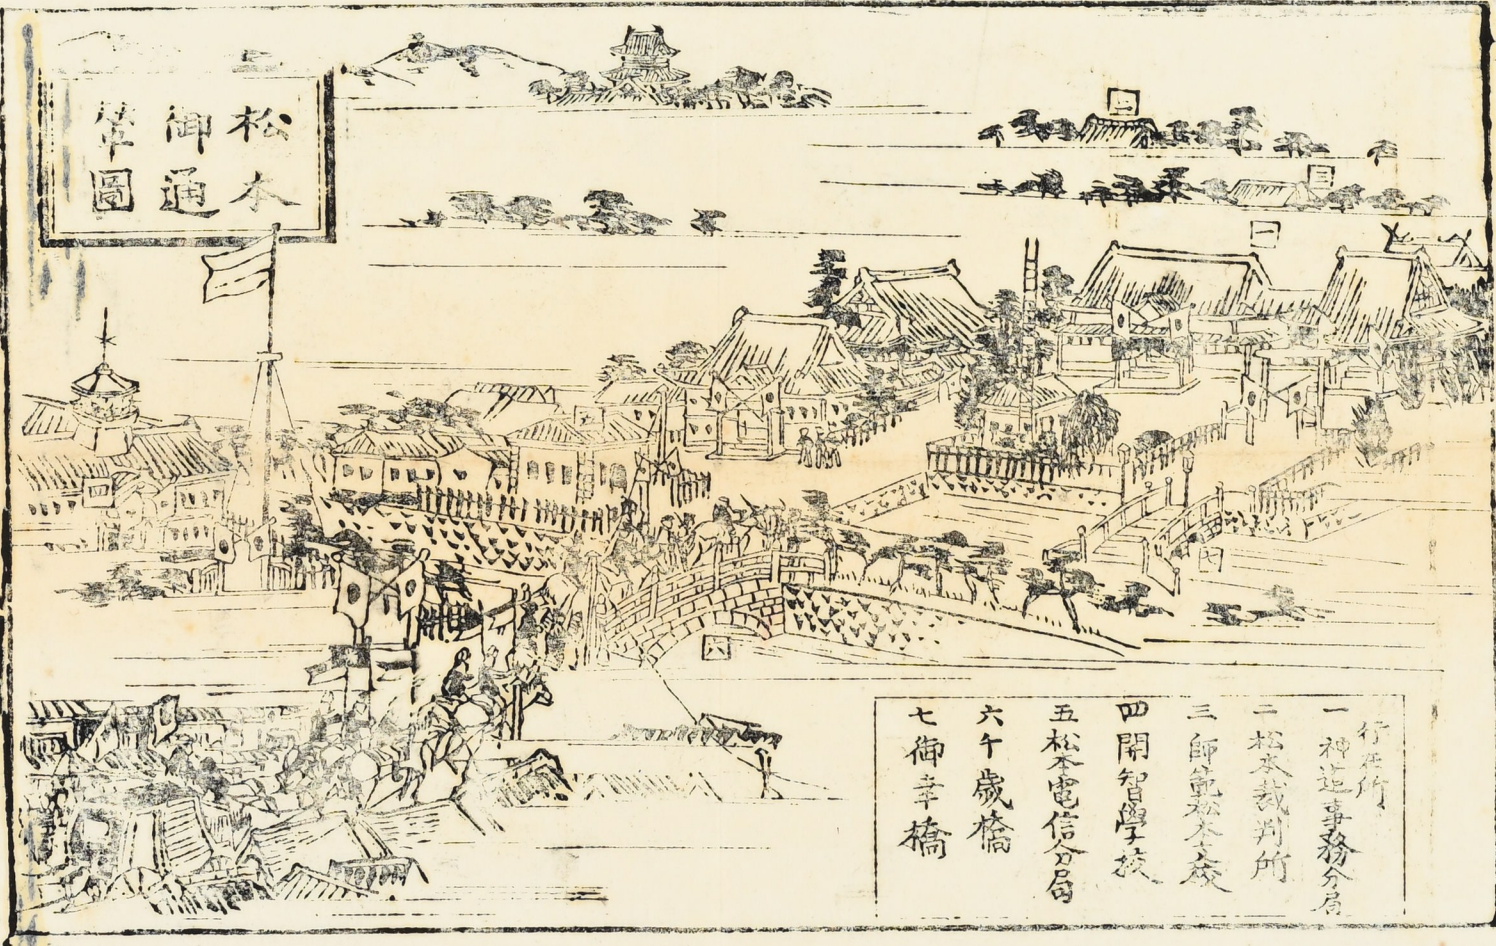 松本
御通
輦圖
二
三
一
六
行在所
一 神道事務分局
二 松本裁判所
三 師範松本支校
四 開智學校
五 松本電信分局
六 千歳橋
七 御幸橋